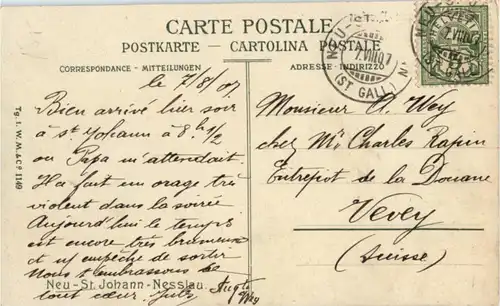 CARTE POSTALE
POSTKARTE - CARTOLINA POSTALE
CORRESPONDANCE - MITTEILUNGEN
ADRESSE - INDIRIZZO
le 7/8/07.
Bien arrivé hier soir
à St Johann à 8 h 1/2
ou Papa m'attendait.
Il a fait un orage très
violent dans la soirée
Aujourd'hui le temps
est encore très brumeux
et n/ empêche de sortir
Nous t'embrassons de
tout cœur. Jules
Neu-St. Johann-Nesslau.
Monsieur A. Wey
chez Mr Charles Rapin
Entrepôt de la Douane
Vevey
(Suisse)
Tg. I. W. M. & Cº 1149
NEU-ST.
7.VIII.07
(ST GALL)
HELVETIA
NEU-
7.VIII.07
(ST GALL)